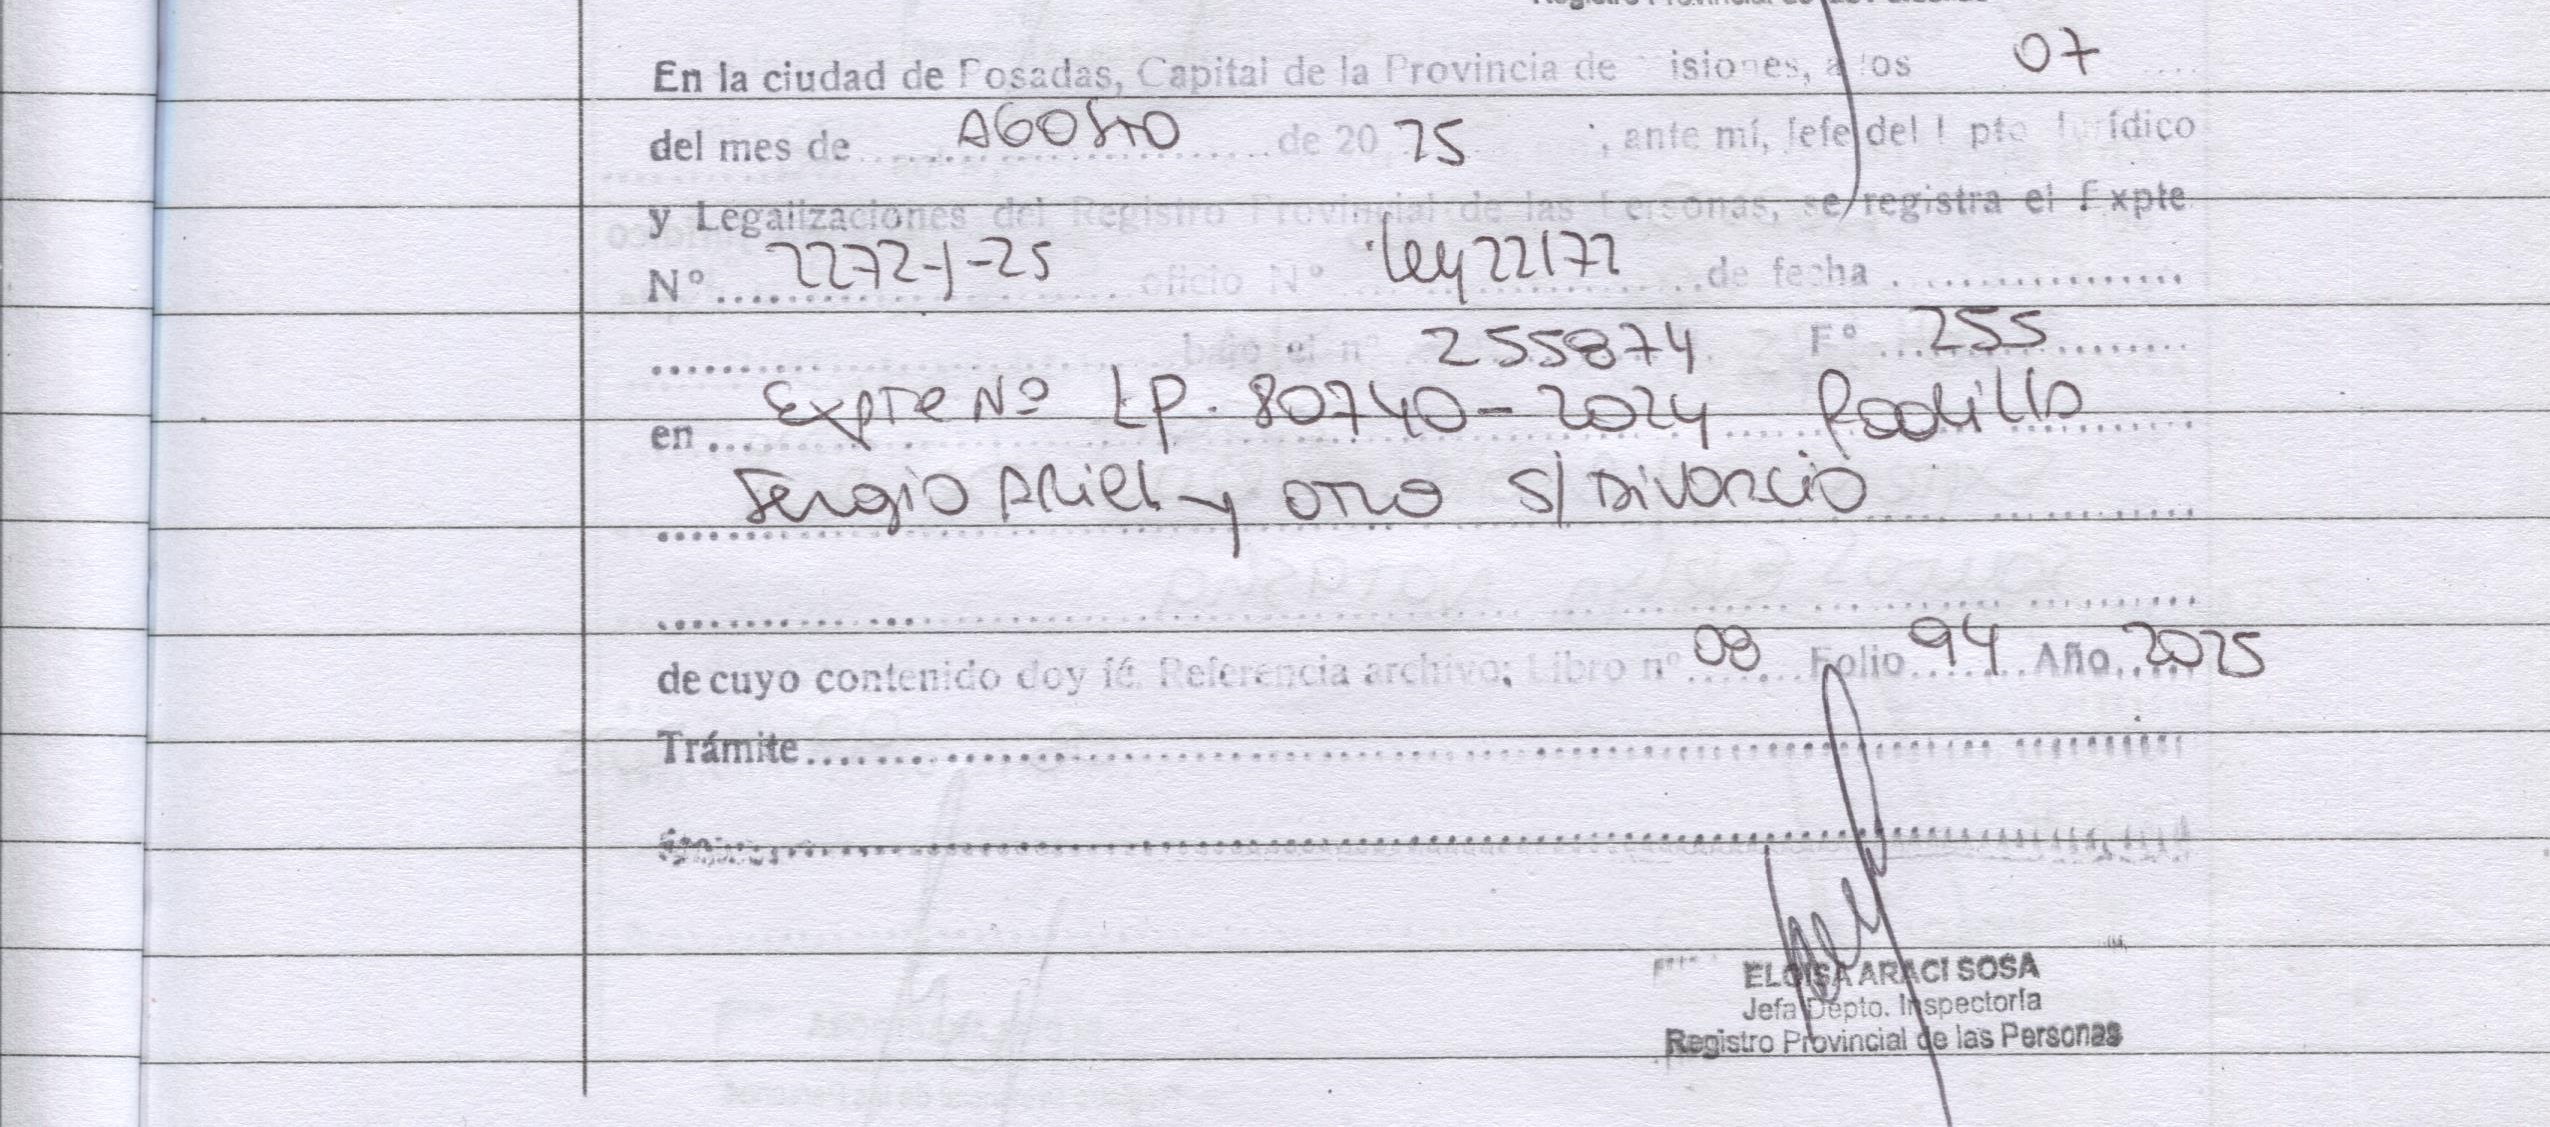 Registro Provincial de las Personas
En la ciudad de Posadas, Capital de la Provincia de Misiones, a los 07
del mes de AGOSTO de 20 25, ante mí, Jefe del Dpto. Jurídico
y Legalizaciones del Registro Provincial de las Personas, se registra el Expte
N° 2272-J-25 oficio N° Ley 22172 de fecha
bajo el n° 255874 F° 255
en Expte Nº LP. 80740-2024 Padilla
Sergio Ariel y otro s/ Divorcio
de cuyo contenido doy fé. Referencia archivo; Libro n° 08 Folio 94 Año 2025
Trámite
ELOISA ARACI SOSA
Jefa Depto. Inspectoría
Registro Provincial de las Personas